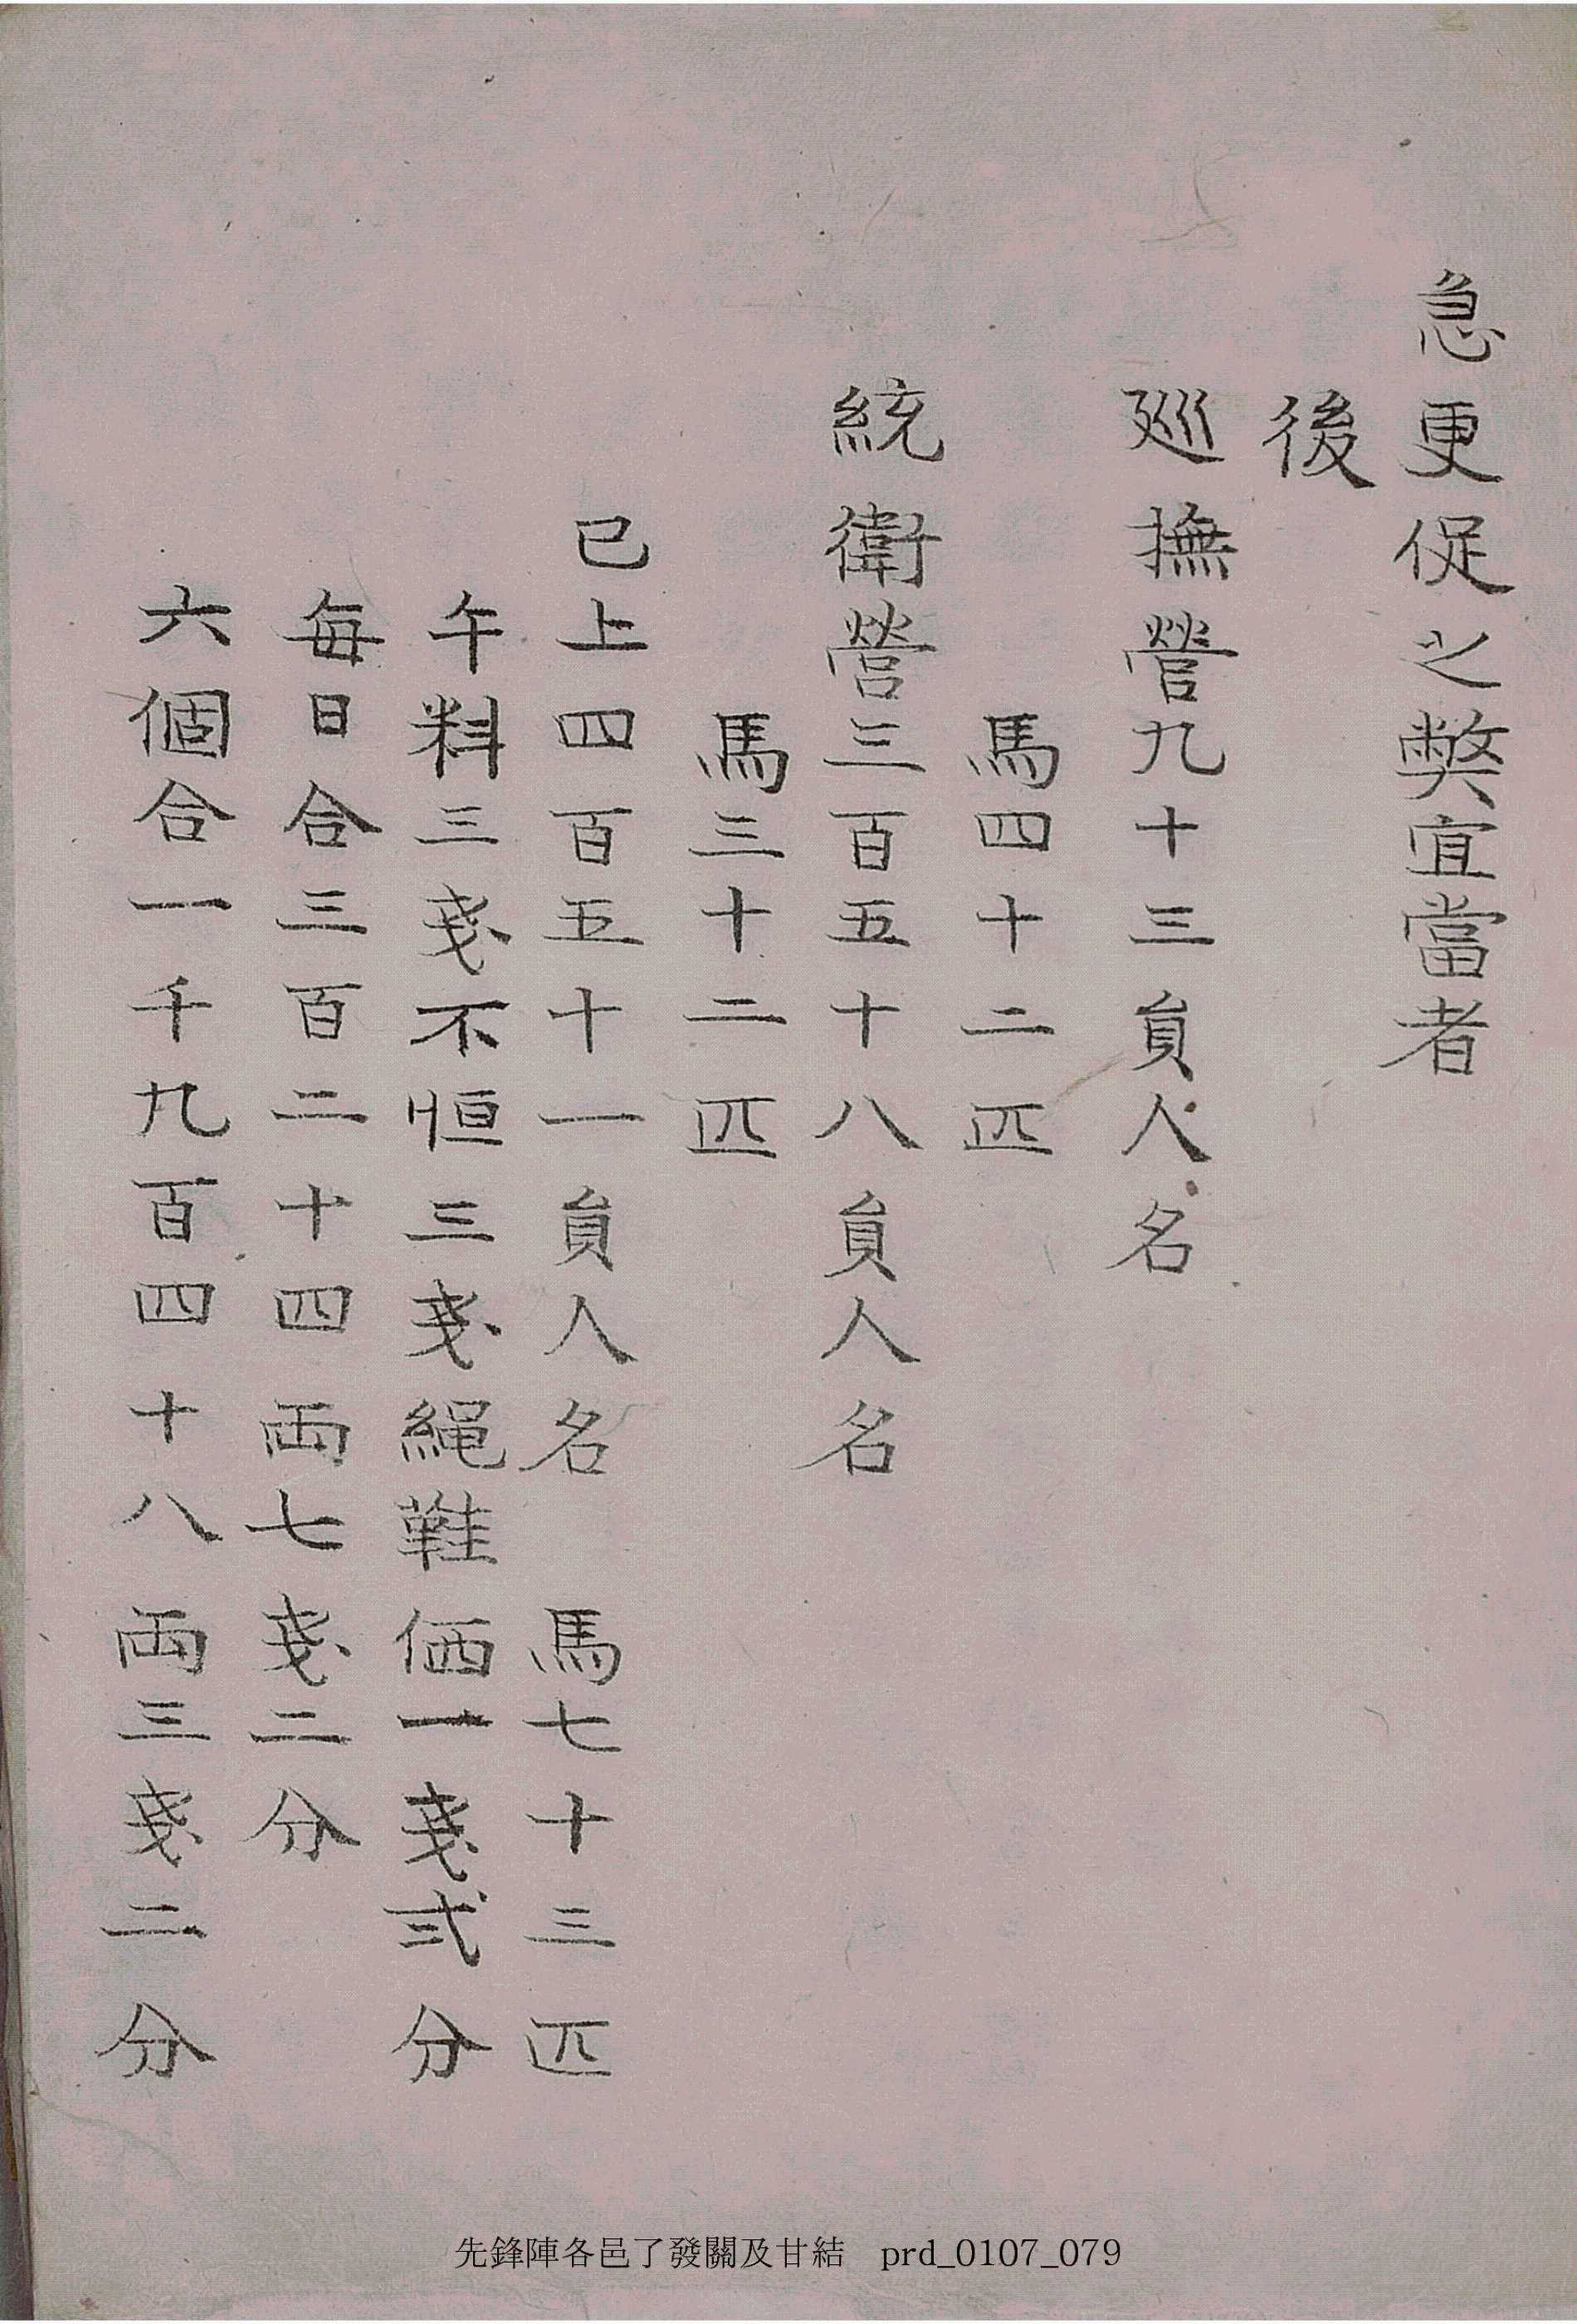 急更促之弊宜當者
後
廵撫營九十三貟人名
馬四十二匹
統衛營三百五十八貟人名
馬三十二匹
已上四百五十一貟人名 馬七十三匹
午料三戔不恒三戔繩鞋価一戔弍分
每日合三百二十四両七戔二分
六個合一千九百四十八両三戔二分
先鋒陣各邑了發關及甘結 prd_0107_079